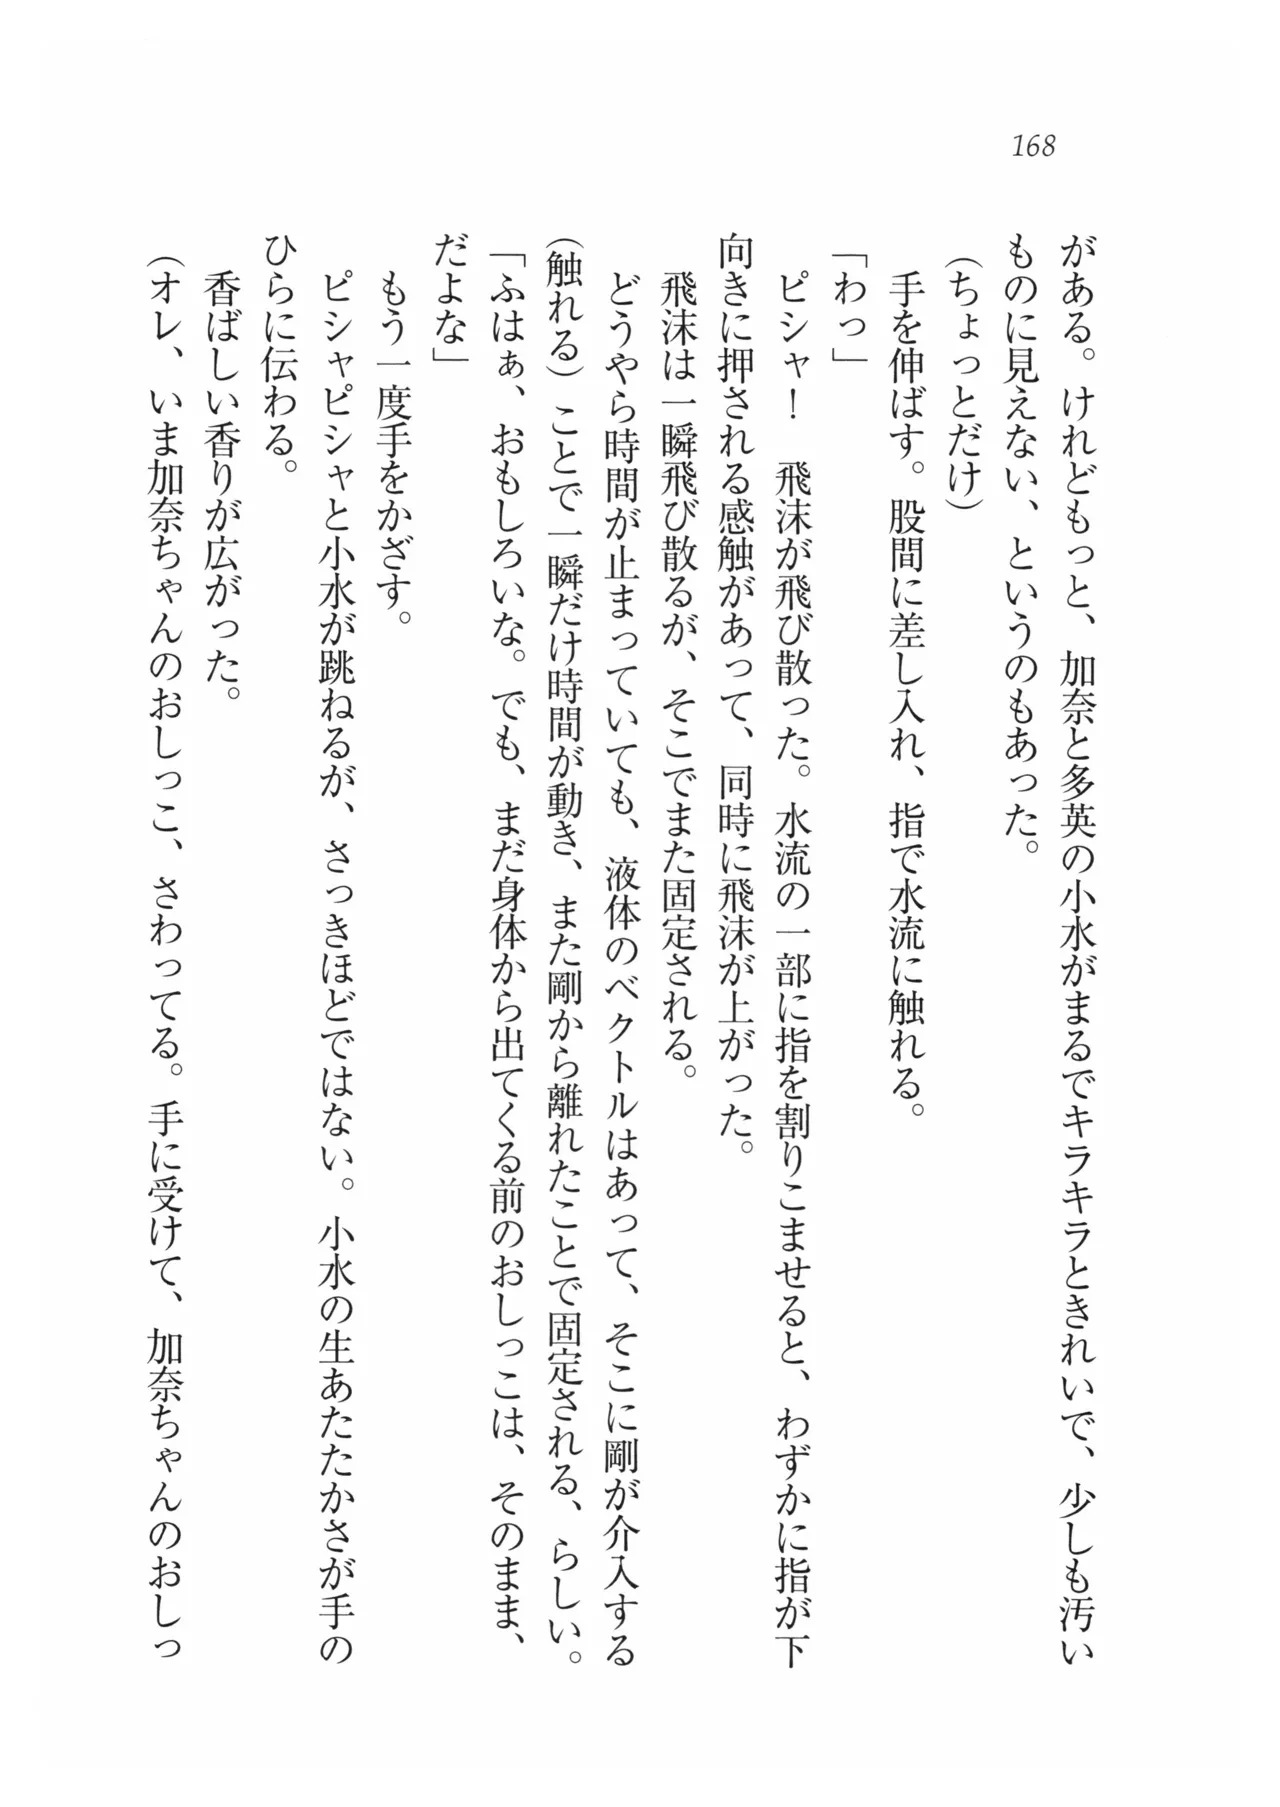 168
がある。けれどもっと、加奈と多英の小水がまるでキラキラときれいで、少しも汚い
ものに見えない、というのもあった。
(ちょっとだけ)
手を伸ばす。股間に差し入れ、指で水流に触れる。
「わっ」
ピシャ！　飛沫が飛び散った。水流の一部に指を割りこませると、わずかに指が下
向きに押される感触があって、同時に飛沫が上がった。
飛沫は一瞬飛び散るが、そこでまた固定される。
どうやら時間が止まっていても、液体のベクトルはあって、そこに剛が介入する
(触れる)ことで一瞬だけ時間が動き、また剛から離れたことで固定される、らしい。
「ふはぁ、おもしろいな。でも、まだ身体から出てくる前のおしっこは、そのまま、
だよな」
もう一度手をかざす。
ピシャピシャと小水が跳ねるが、さっきほどではない。小水の生あたたかさが手の
ひらに伝わる。
香ばしい香りが広がった。
(オレ、いま加奈ちゃんのおしっこ、さわってる。手に受けて、加奈ちゃんのおしっ